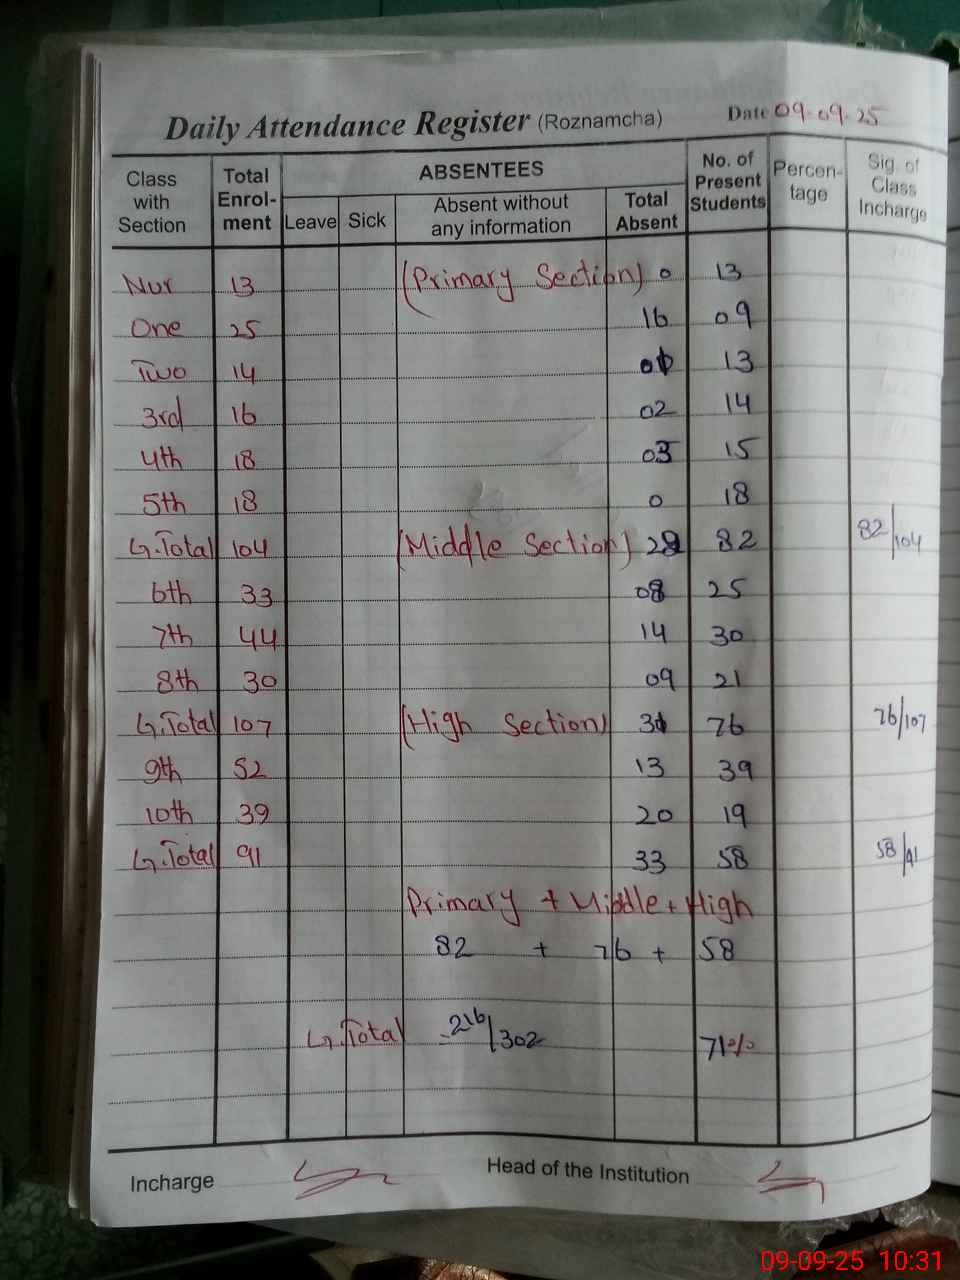 Daily Attendance Register (Roznamcha) Date 09-09-25
Class with Section Total Enrol-ment ABSENTEES No. of Present Students Percen-tage Sig. of Class Incharge
Leave Sick Absent without any information Total Absent
Nur 13 (Primary Section) 0 13
One 25 16 09
Two 14 01 13
3rd 16 02 14
4th 18 03 15
5th 18 0 18
G.Total 104 (Middle Section) 82 82/104
6th 33 08 25
7th 44 14 30
8th 30 09 21
G.Total 107 (High Section) 31 76 76/107
9th 52 13 39
10th 39 20 19
G.Total 91 33 58 58/91
Primary + Middle + High
82 + 76 + 58
G.Total 216/302 71%
Incharge Head of the Institution
09-09-25 10:31